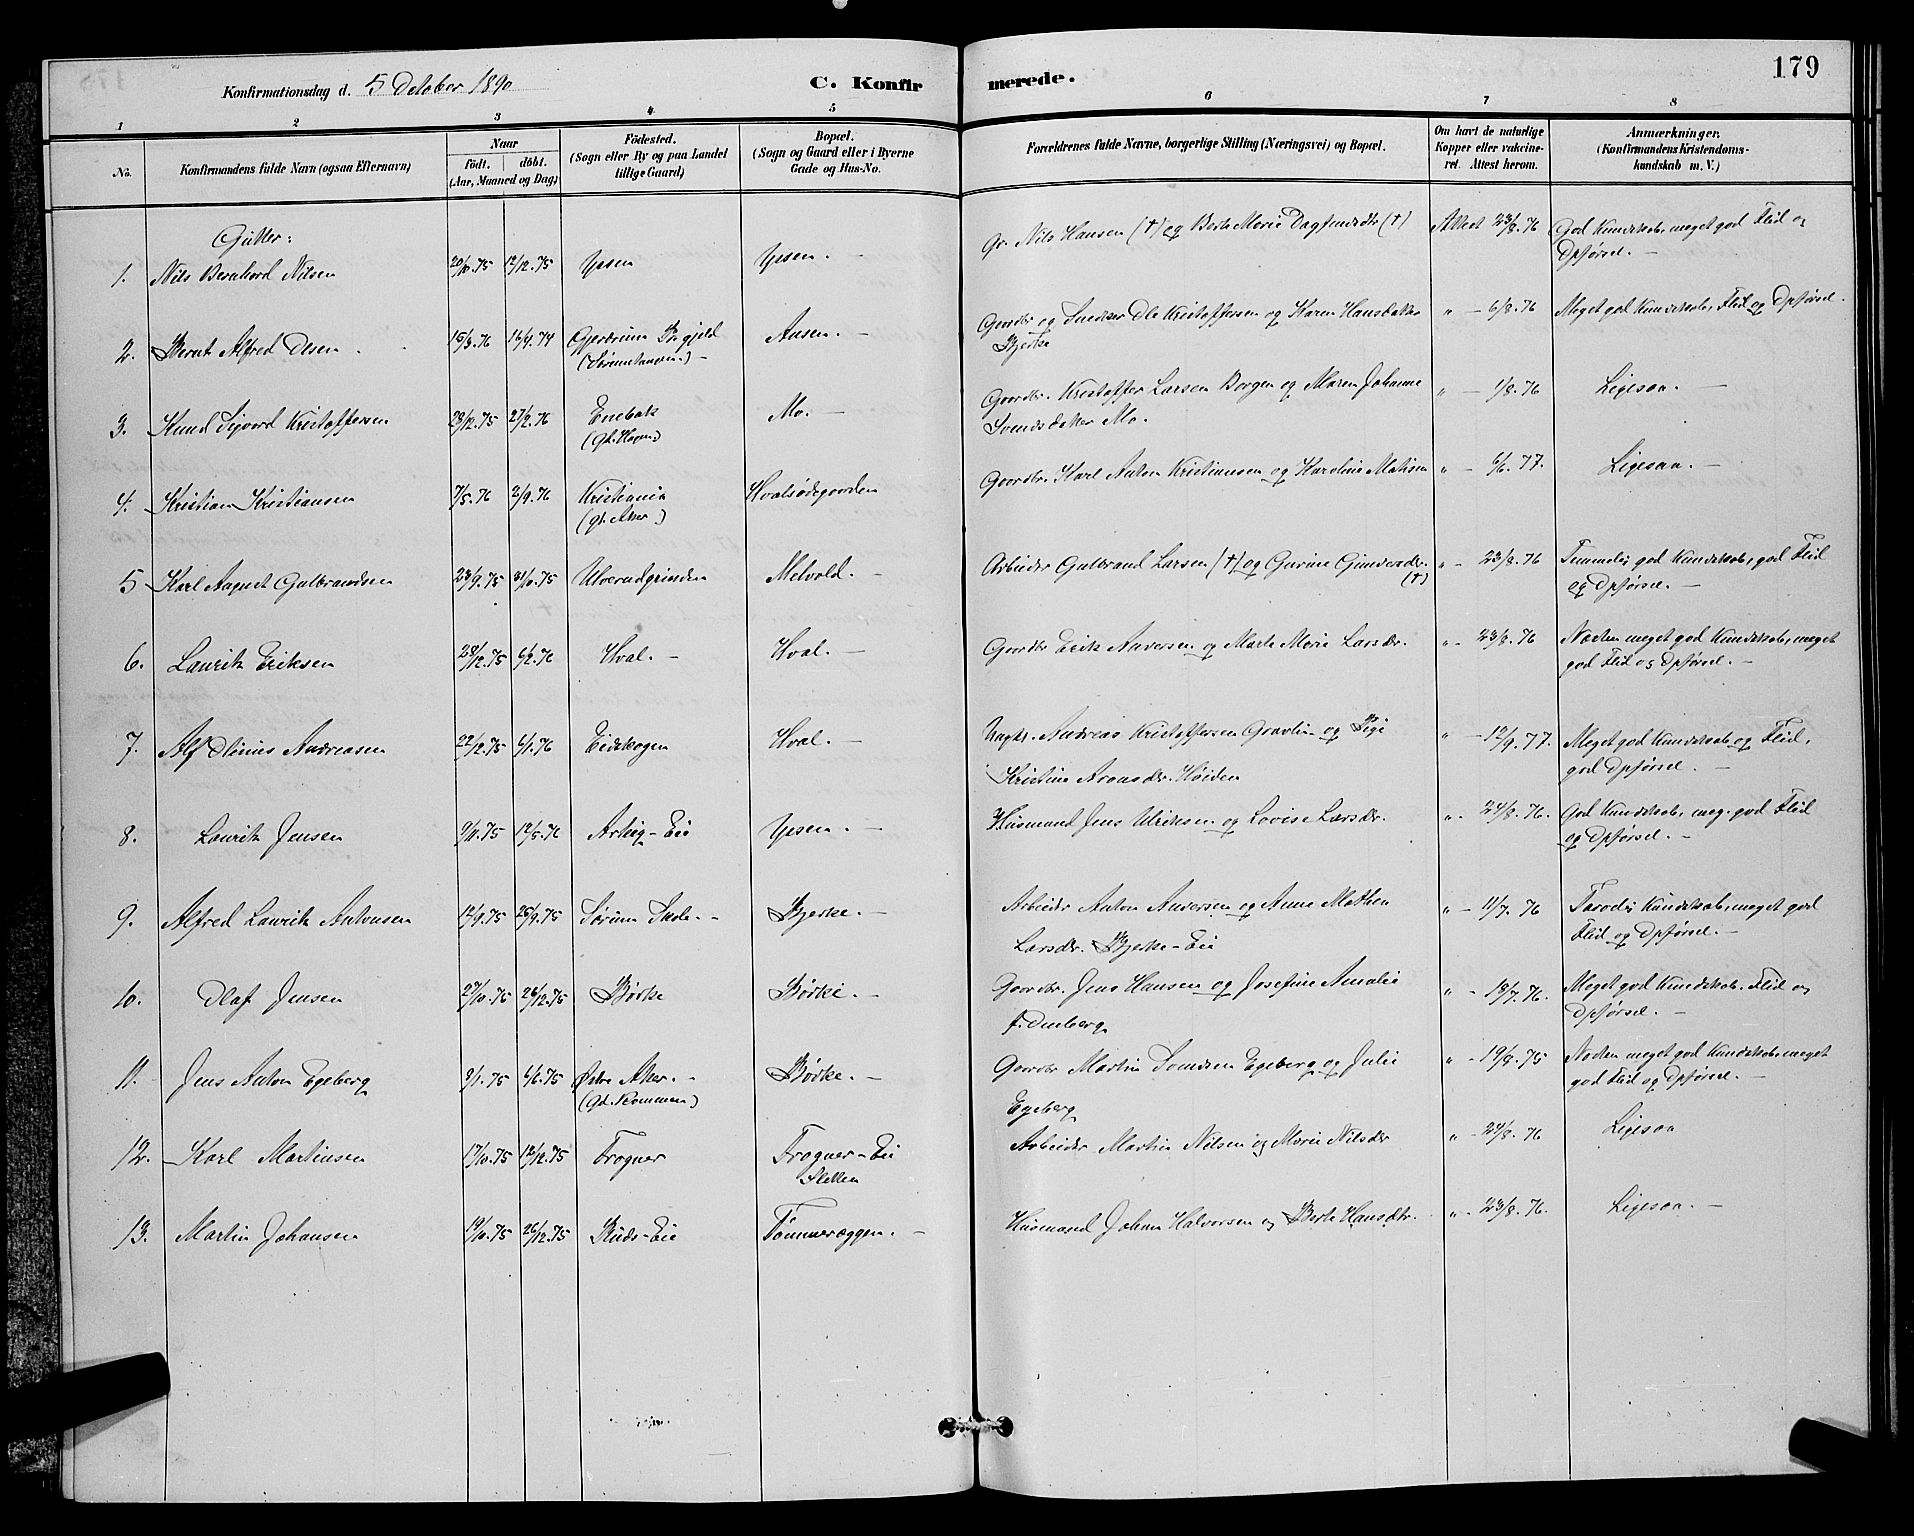 179
Konfirmationsdag d. 5 October 1890
C. Konfirmerede.
1 2 3 4 5 6 7 8
No.
Konfirmandens fulde Navn (ogsaa Efternavn)
Naar
födt. döbt.
(Aar, Maaned og Dag)
Födested.
(Sogn eller By og paa Landet
tillige Gaard)
Bopæl.
(Sogn og Gaard eller i Byerne
Gade og Hus-No.
Forældrenes fulde Navne, borgerlige Stilling (Næringsvei) og Bopæl.
Om havt de naturlige
Kopper eller vakcine-
ret. Attest herom.
Anmærkninger.
(Konfirmandens Kristendoms-
kundskab m. V.)
Gutter:
1. Nils Bernhard Nilsen 20/10.75 12/12.75 Ypsen Ypsen. —
Gr. Nils Hansen (†) og Berte Marie Dagfinsdtr (†) Attest 23/8.76 God Kundskab, meget god Flid og
Opførsel. —
2. Bernt Alfred Olsen 15/3.76 16/4.74 Gjerdrum Prgjeld Ausen. —
Gaardbr og Snedker Ole Kristoffersen og Karen Hansdatter " — 6/8.76 Meget god Kundskab, Flid og Opførsel.
Bjerke
3. Knud Sigvard Kristoffersen 23/12.75 27/2.76 Enebak Mo. —
(gd. Hagen)
Gaardbr. Kristoffer Larsen Borgen og Maren Johanne " — 1/8.76 Ligesaa. —
Svendsdatter Mo.
4. Kristian Kristiansen 7/5.76 2/9.76 Kristiania Hvalsødegaarden
(gl. Aker)
Gaardbr. Karl Anton Kristiansen og Karoline Matisen " — 6/6.77. Ligesaa. —
5 Karl August Gulbrandsen 23/9.75 31/10.75 Ulverudgrinden Melvold. —
Arbeider Gulbrand Larsen (†) og Gurine Gundersdr. (†) " - 23/8.76 Temmelig god Kundskab, god Flid
og Opførsel. —
6. Lauritz Eriksen 28/12.75 6/2.76 Hval. — Hval. —
Gaardbr Erik Andersen og Marte Marie Larsdr. " - 23/8.76 Næsten meget god Kundskab, meget
god Flid og Opførsel. —
7. Alf Andreasen 22/12.75 6/1.76 Eidskogen Hval. —
Ungkr. Andreas Kristoffersen Gravlin og Pige " — 12/9.77. Meget god Kundskab og Flid,
Kristine Aronsdr. Høiden god Opførsel. —
8. Lauritz Jensen 9/11.75 12/5.76 Arteig-Eie Ypsen. —
Husmand Jens Ulriksen og Lovise Larsdr. " - 24/8.76. God Kundskab, meg. god Flid
og Opførsel. —
9. Alfred Lauritz Antonsen 12/9.75 26/9.75 Sørum Bjerke. —
Arbeider Anton Andersen og Anne Mathea " — 11/7.76 Farodig Kundskab, meget god
Larsdr. Bjerke-Eie Flid og Opførsel. —
10. Olaf Jensen 27/10.75 26/12.75 Børke Børke. —
Gaardbr. Jens Hansen og Josefine Amalie " - 18/7.76. Meget god Kundskab. Flid og
Opførsel. —
11. Jens Anton Egeberg 9/1.75 6/6.75 Østre Aker. Børke. —
(gd. Rommen)
Gaardbr Martin Svendsen Egeberg og Julie " - 19/8.75 Næsten meget god Kundskab, meget
Egeberg god Flid og Opførsel. —
12. Karl Martinsen 17/10.75 12/12.75 Frogner Frogner-Eie
Sletten
Arbeider Martin Nilsen og Marie Nilsdr " - 24/8.76 Ligesaa
13. Martin Johansen 19/10.75 26/12.75 Ruds-Eie Tømmeraggen. —
Husmand Johan Halvorsen og Berte Hansdtr. " - 23/8.76. Ligesaa. —